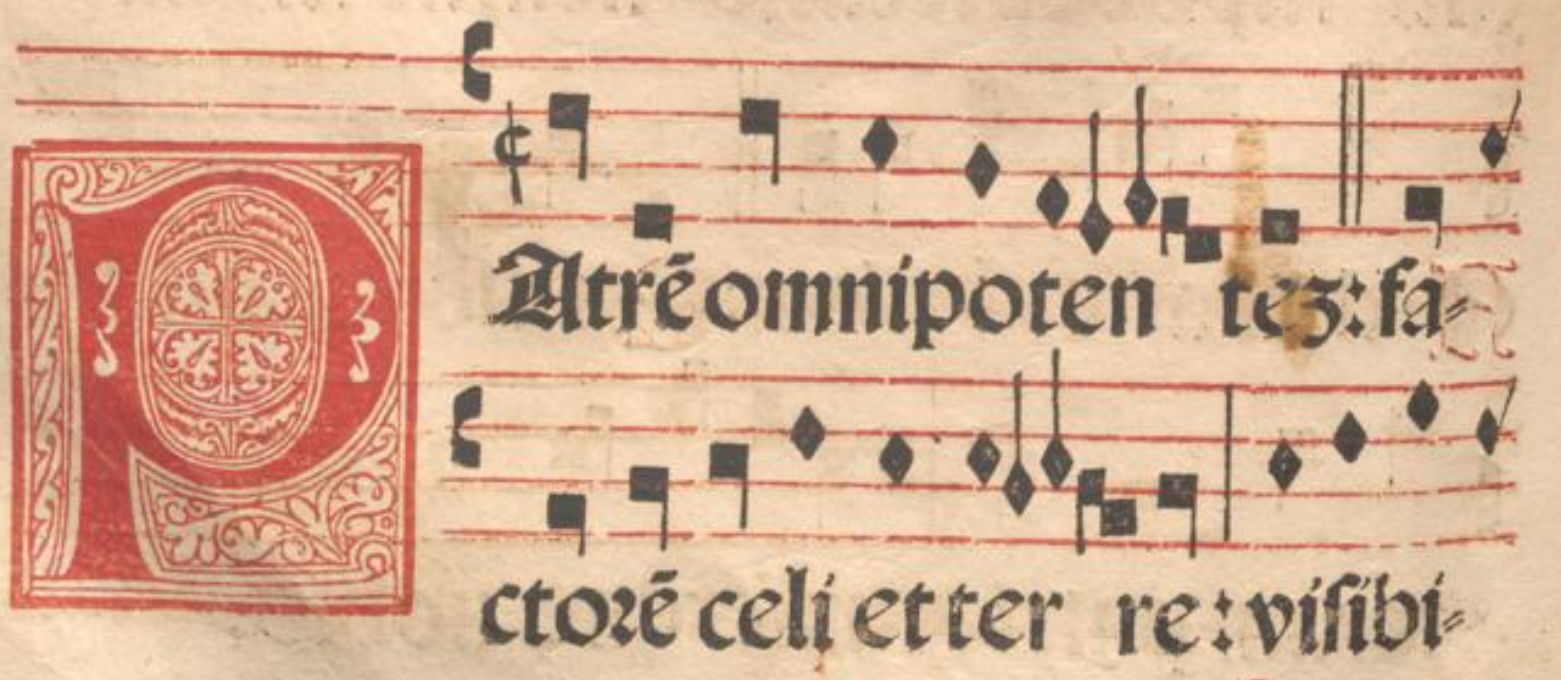 PAtrē omnipoten teʒ: fa⸗
ctorē celi et ter re: viſibi⸗